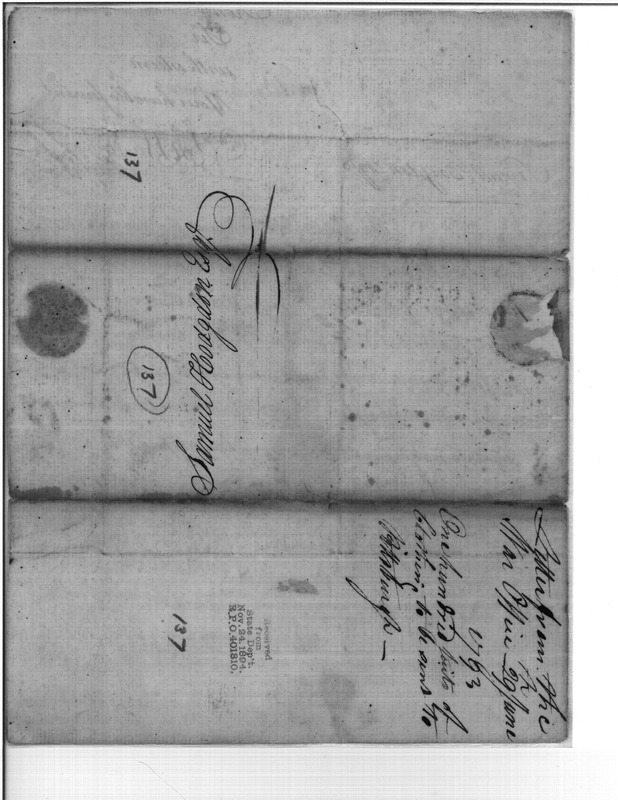 137
Samuel Hodgdon Esqr
137
Letter from the
War Office 29 June
1793
One hundred suits of
Clothing to be sent to
Pittsburgh —
Received
from
State Dep't.
Nov. 24. 1894.
R.P.O. 401810.
137